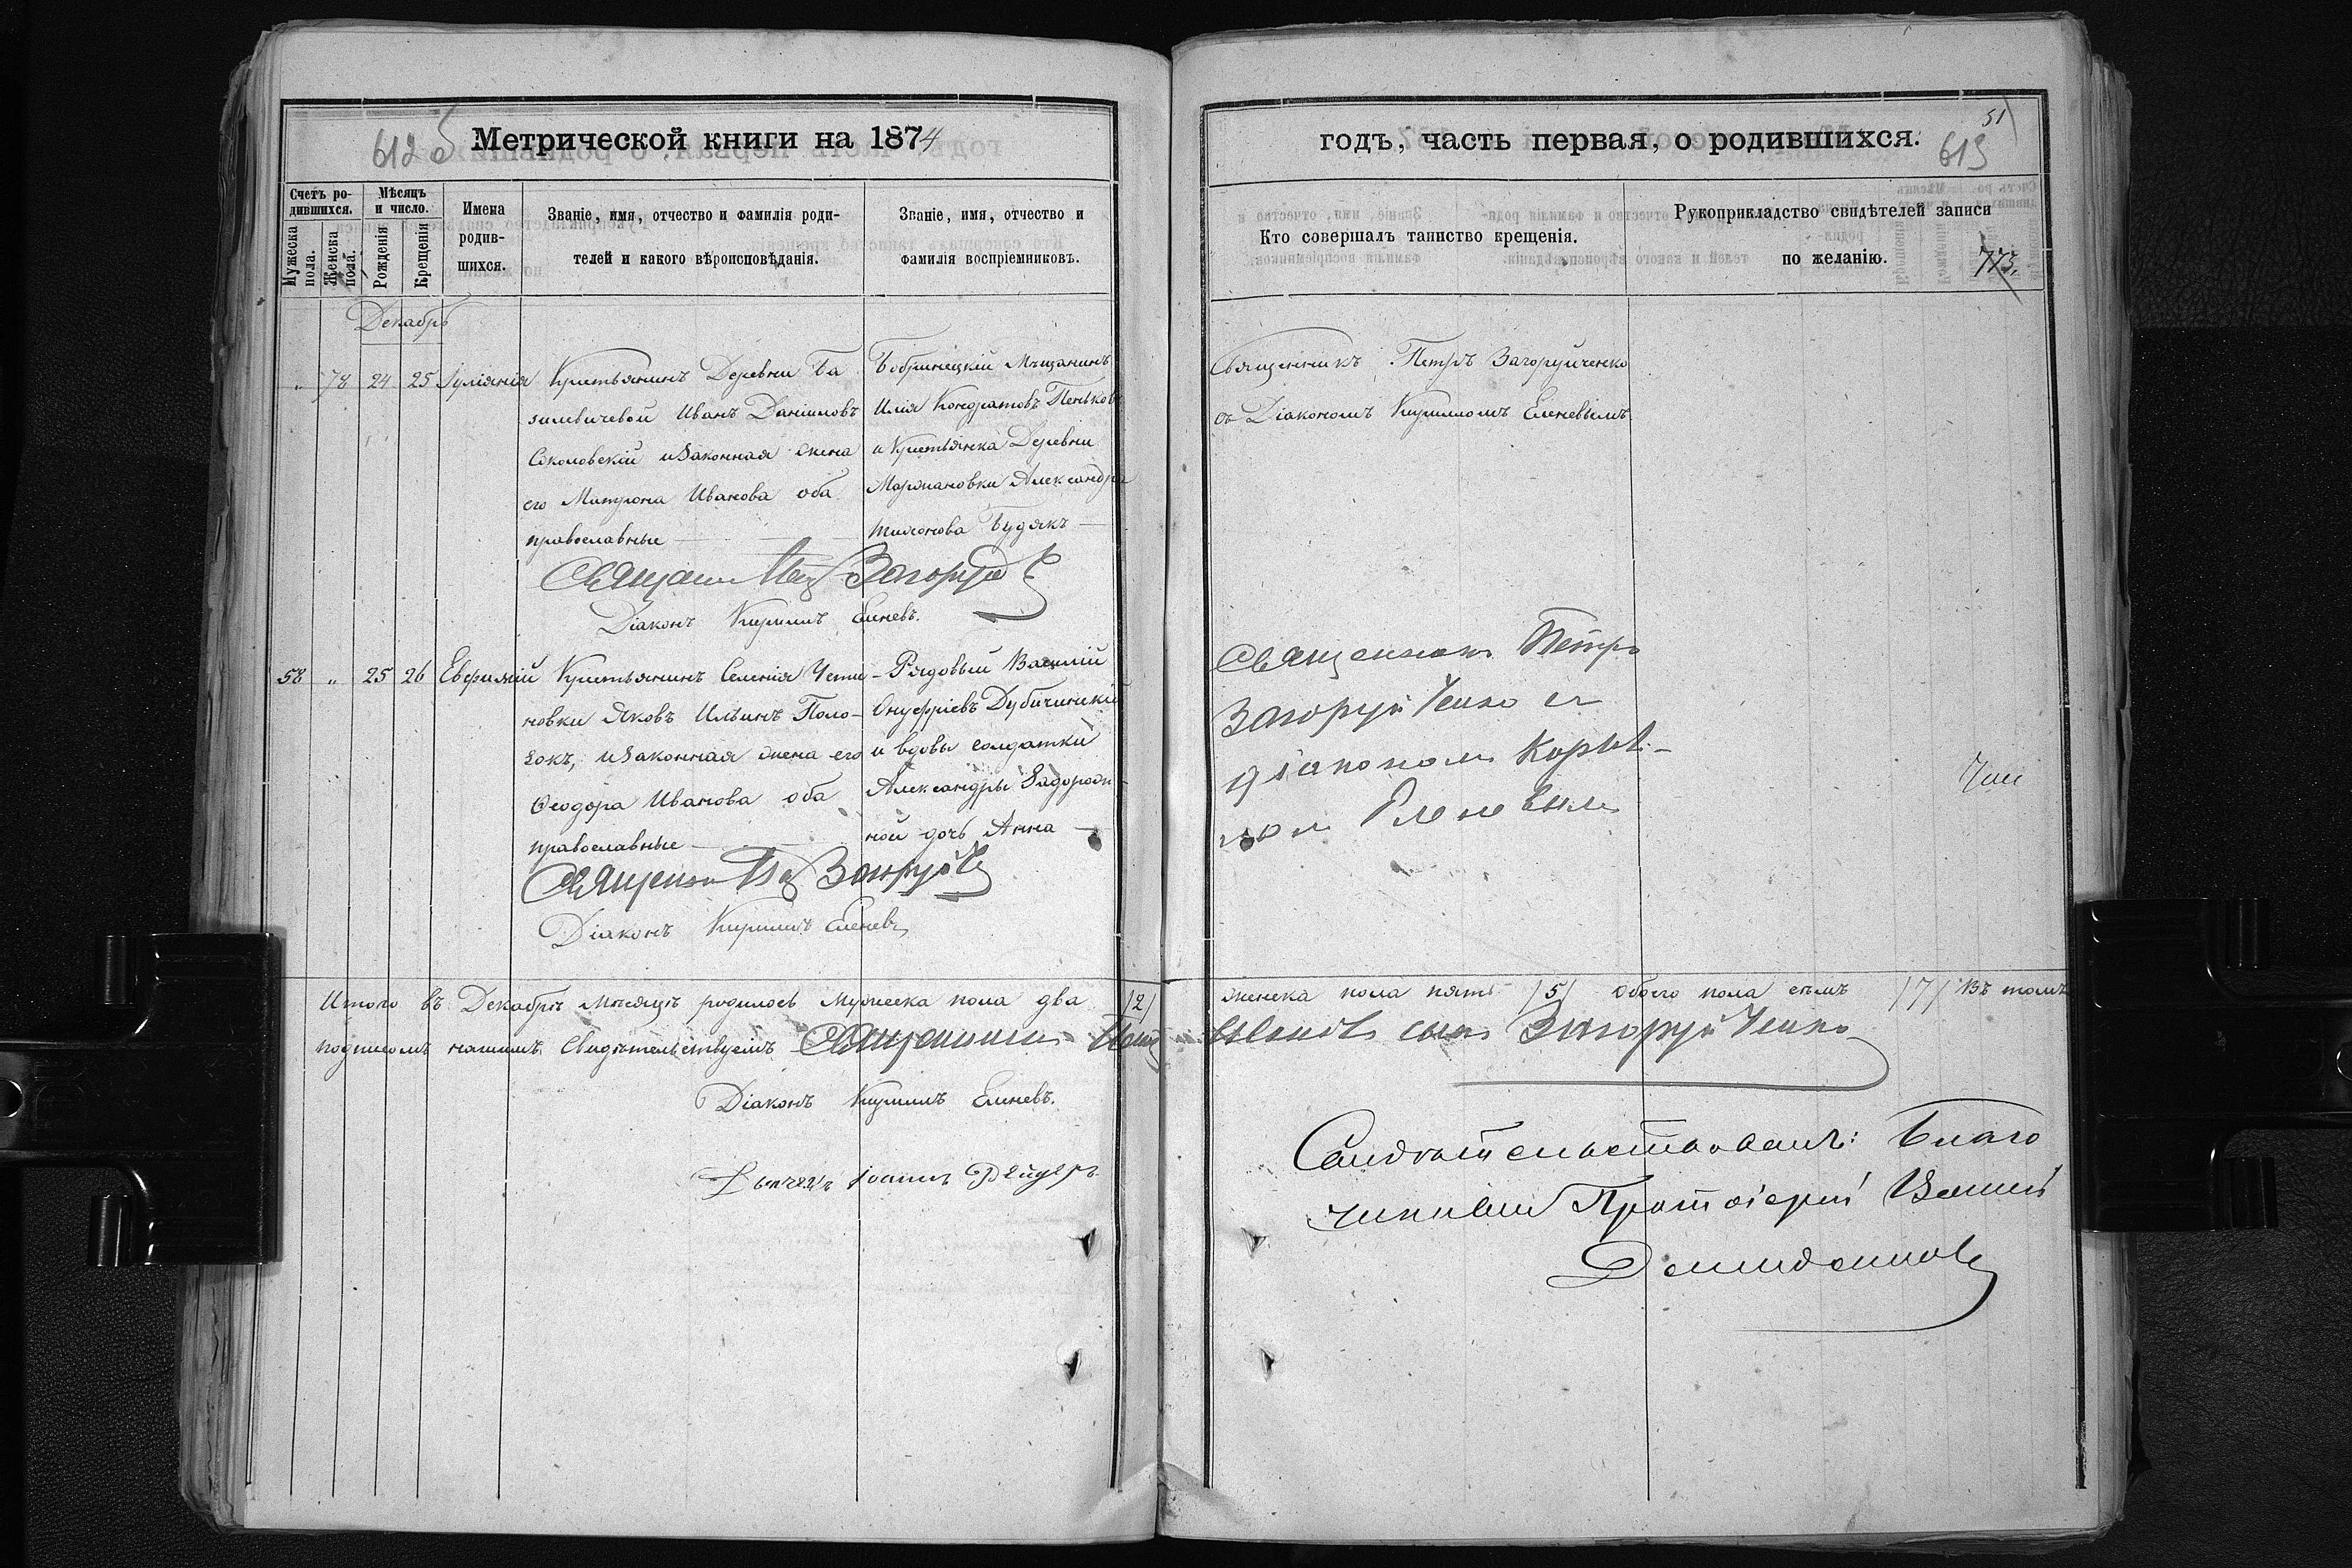 612 б Метрической книги на 1874
годъ, часть первая, о родившихся.
51
613
Счетъ ро-
дившихся.
Мужеска пола.
Женска пола.
Мѣсяцъ
и число.
Рожденія
Крещенія
Имена
родив-
шихся.
Званіе, имя, отчество и фамилія роди-
телей и какого вѣроисповѣданія.
Званіе, имя, отчество и
фамилія воспріемниковъ.
Кто совершалъ таинство крещенія.
Рукоприкладство свидѣтелей записи
по желанію.
773.
Декабрь
" 78 24 25 Іуліанія
Крестьянинъ Деревни Ба
зилевичевой Иванъ Даніиловъ
Соколовскій и Законная жена
его Матрона Иванова оба
православные
Бобринецкій Мѣщанинъ
Илія Кондратовъ Пеньковъ
и Крестьянка Деревни
Марьяновки Александра
Будякъ
Священникъ Петръ Загоруйченко
съ Діакономъ Кирилломъ Еленевымъ
Діаконъ Кириллъ Еленевъ.
58 " 25 26 Евфимій
Крестьянинъ Селенія Чети-
новки Яковъ Ильинъ Поло-
вокъ, и Законная жена его
Ѳеодора Иванова оба
православные
Рядовый Василій
Онуфріевъ
и вдовы солдатки
Александры Задорож-
ной дочь Анна
Священникъ Петръ
Загоруйченко съ
діакономъ Кирил-
ломъ Еленевымъ
Діаконъ Кириллъ Еленевъ
Итого въ Декабрѣ Мѣсяцѣ родилось Мужеска пола два /2/ женска пола пять /5/ обоего пола семь /7/ Въ томъ
подписомъ нашимъ Свидѣтельствуемъ Священникъ Петръ сынъ Загоруйченко
Діаконъ Кириллъ Еленевъ.
Іоаннъ
Свидѣтельствовалъ: Благо
чинный Протоіерей